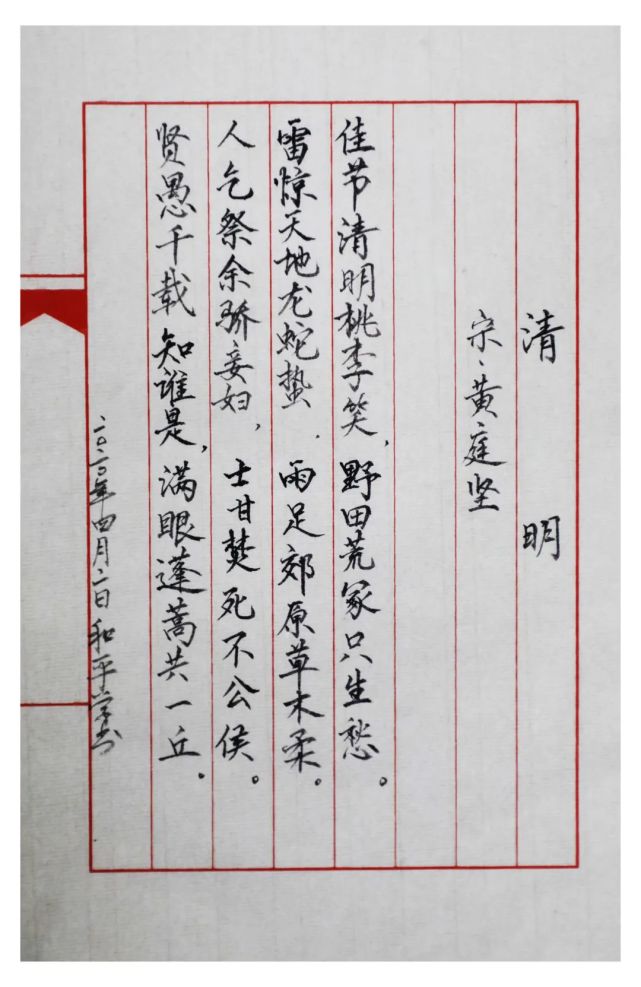 清明
宋、黄庭坚
佳节清明桃李笑，野田荒冢只生愁。
雷惊天地龙蛇蛰，雨足郊原草木柔。
人乞祭余骄妾妇，士甘焚死不公侯。
贤愚千载知谁是，满眼蓬蒿共一丘。
二〇二〇年四月二日和平学书